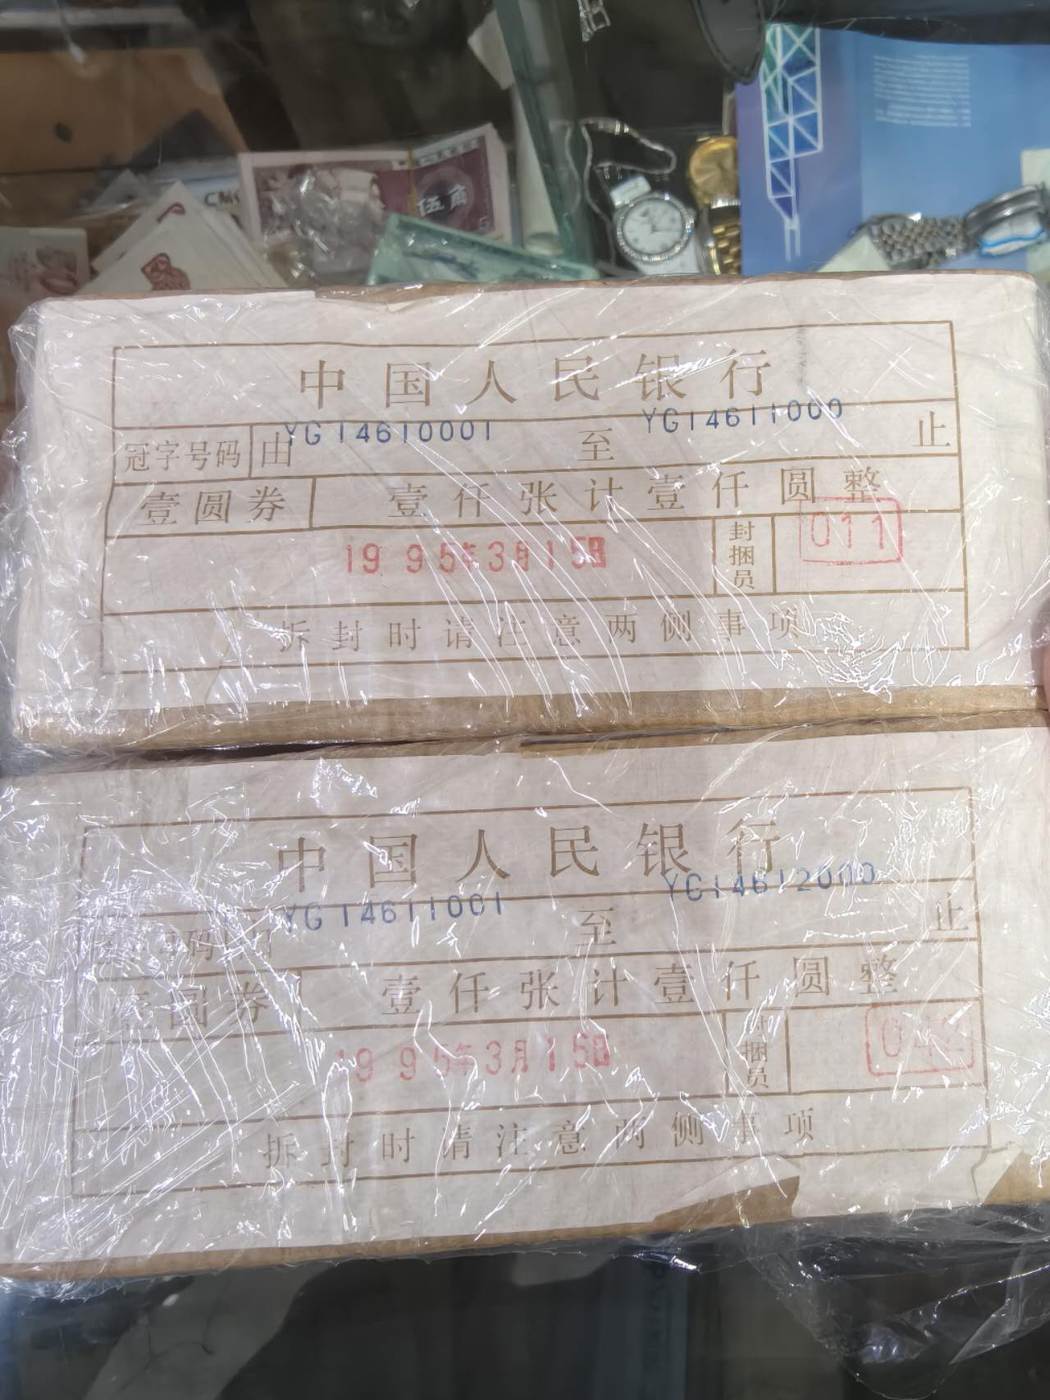 伍角
中国人民银行
冠字号码 由 YG14610001 至 YG14611000 止
壹圆券 壹仟张计壹仟圆整
1995年3月15日 封捆员 011
拆封时请注意两侧事项
中国人民银行
码 YG14611001 至 YG14612000 止
圆券 壹仟张计壹仟圆整
1995年3月15日 捆员
拆封时请注意两侧事项